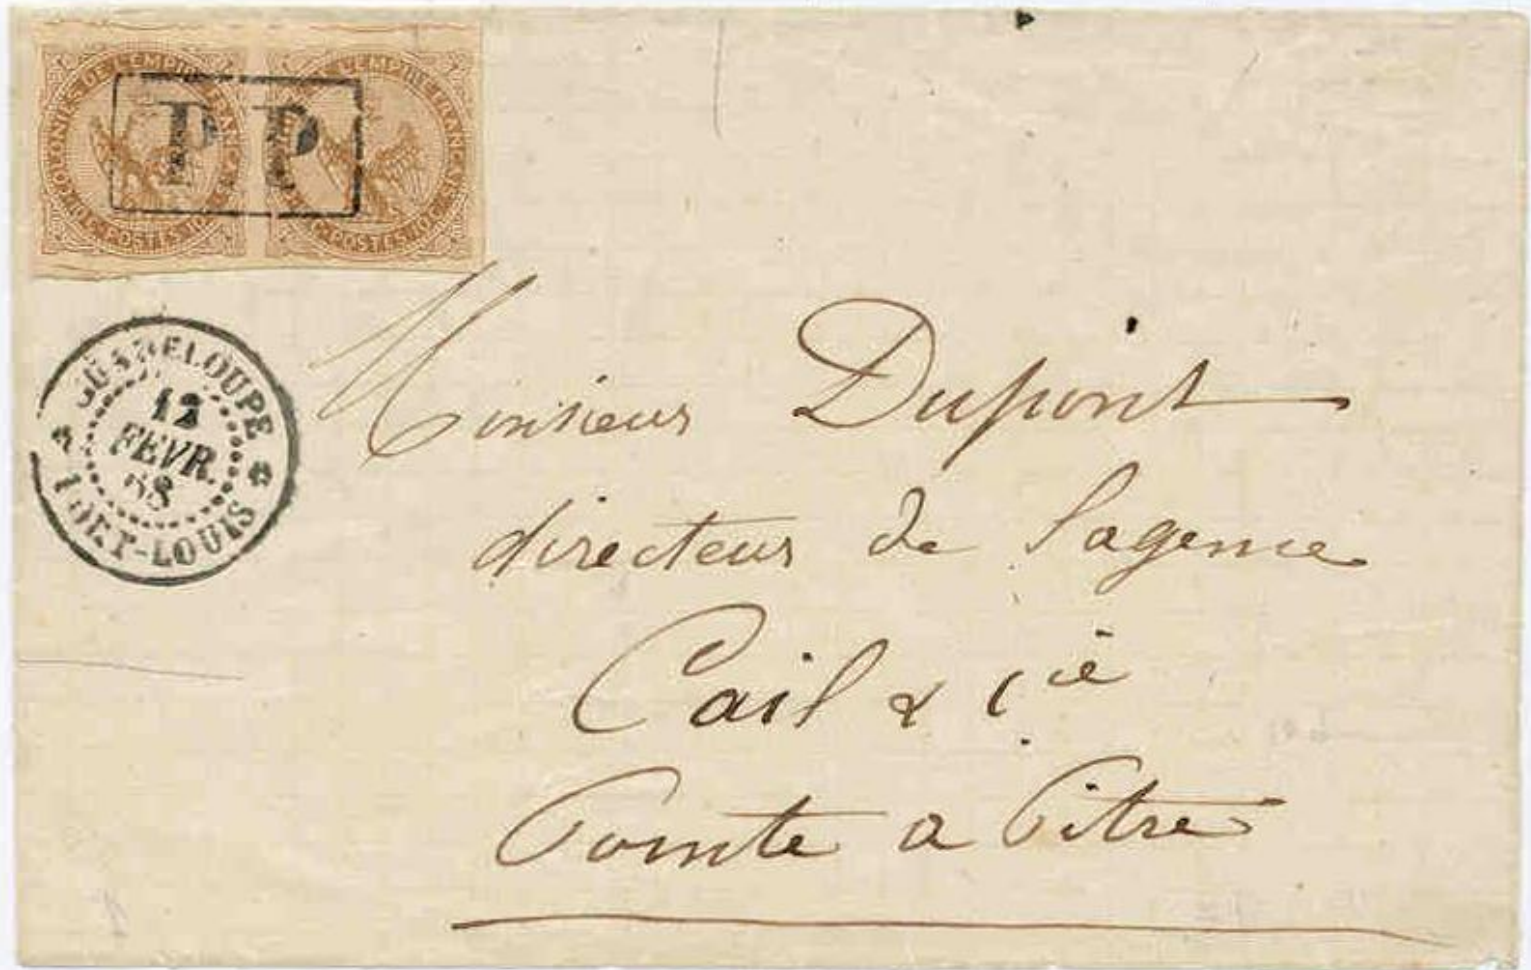 COLONIES DE L'EMPIRE FRANÇAIS
10 C. POSTES 10 C.
L'EMPIRE FRANÇAIS
C. POSTES 10 C.
P.P
GUADELOUPE
12
FEVR.
68
PORT-LOUIS
Monsieur Dupont
directeur de l'agence
Cail & Cie
Pointe a Pitre